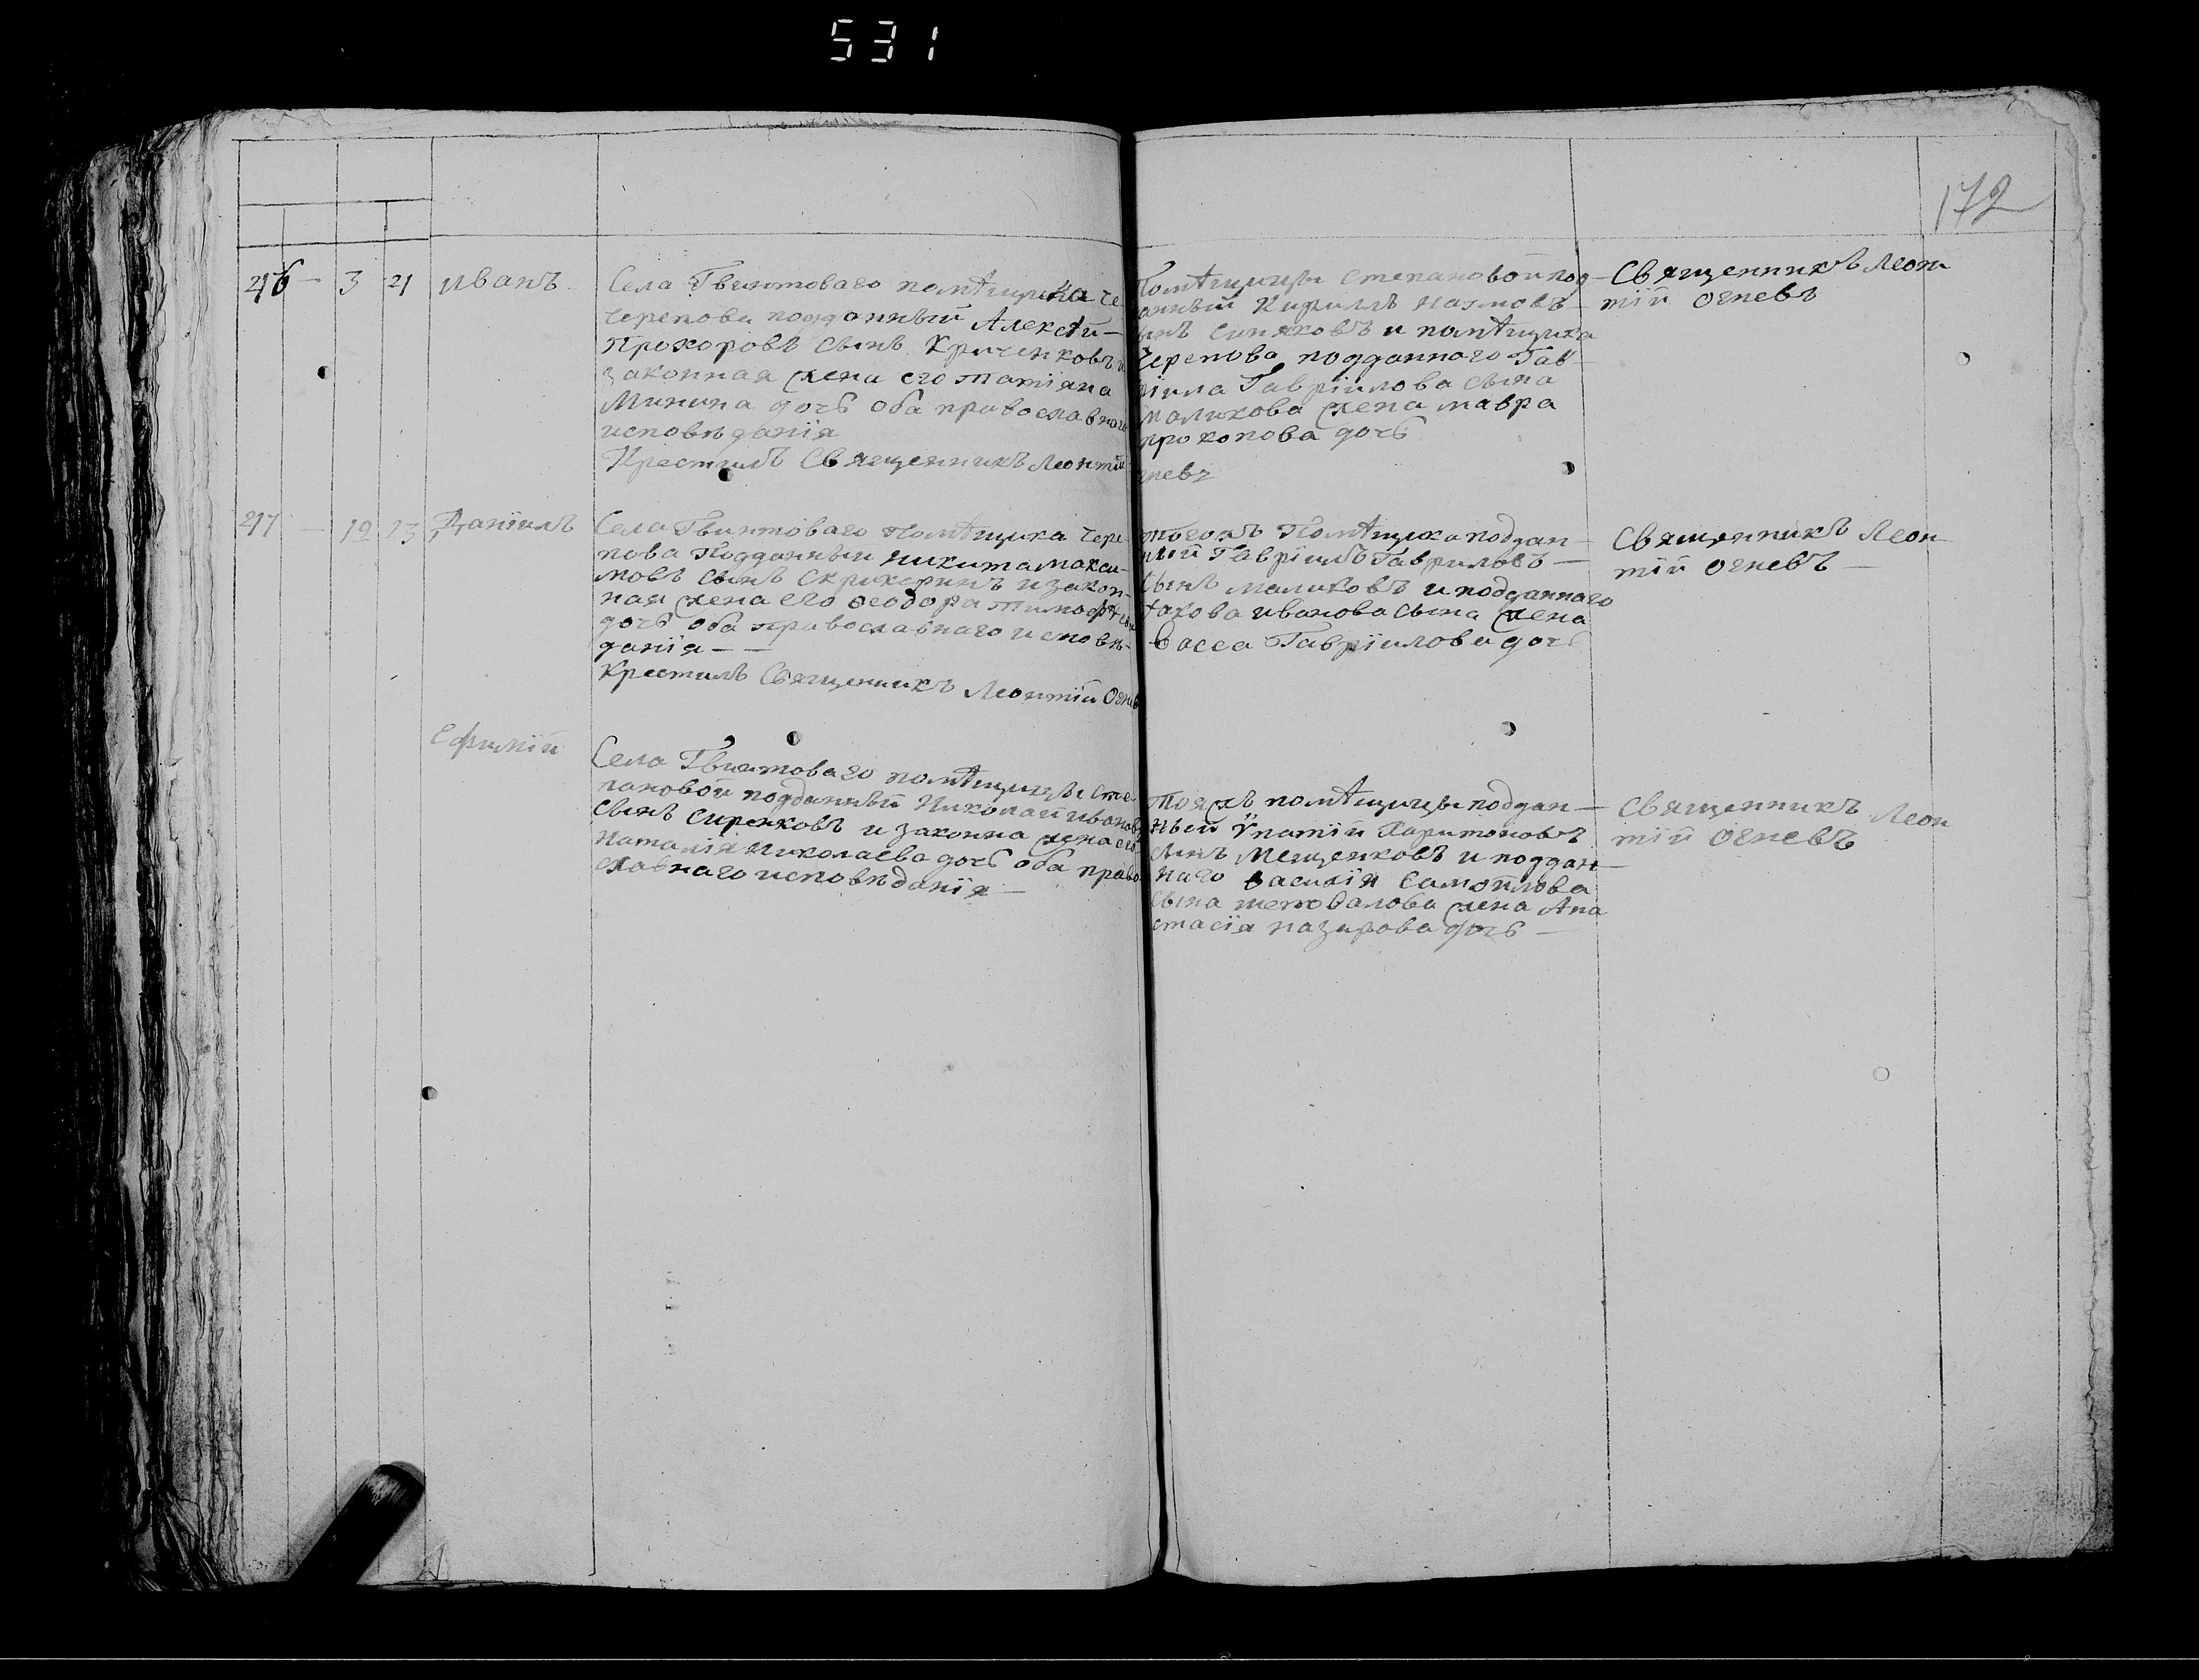 531
172
216 — 3 21 Иванъ
Села Гвинтоваго помѣщика Че-
черепова подданный Алексѣй —
Прохоровъ сынъ Криченковъ и
законная жена его Татіяна
Минина дочь оба православнаго
исповѣданїя
Крестилъ Священникъ Леонтїй
Помѣщицы Степановой под-
анный Кириллъ Наумовъ —
ынъ Синяковъ и помѣщика
Черепова подданного Гав-
ріила Гавріилова сына
Маликова жена Мавра
Прокопова дочь
гневъ
Священникъ Леон
тїй Огневъ
217 — 12 13 Данїилъ
Села Гвинтоваго Помѣщика Чере-
пова Подданный Никита Макси-
мовъ сынъ и закон-
ная жена его Феодора Тимофѣева
дочь оба православнаго исповѣ-
данїя — —
Крестилъ Священникъ Леонтїй Огнев
тогожъ Помѣщика поддан-
ный Гавріилъ Гавриловъ —
сынъ Маликовъ и подданнаго
Якова Иванова сына жена
Васса Гавріилова дочь
Священникъ Леон-
тїй Огневъ —
Ефимїй
Села Гвинтоваго помѣщицы Сте-
пановой подданный Николай Ивановъ
сынъ Сиренковъ и законна жена его
Наталїя Николаева дочь оба право
славнаго исповѣданїя —
Тояжъ помѣщицы поддан —
ный Ѵпатїй Харитоновъ
сынъ Мещенковъ и поддан —
наго Василїя Самойлова
сына жена Ана
стасїя Назарова дочь —
Священникъ Леон
тїй Огневъ